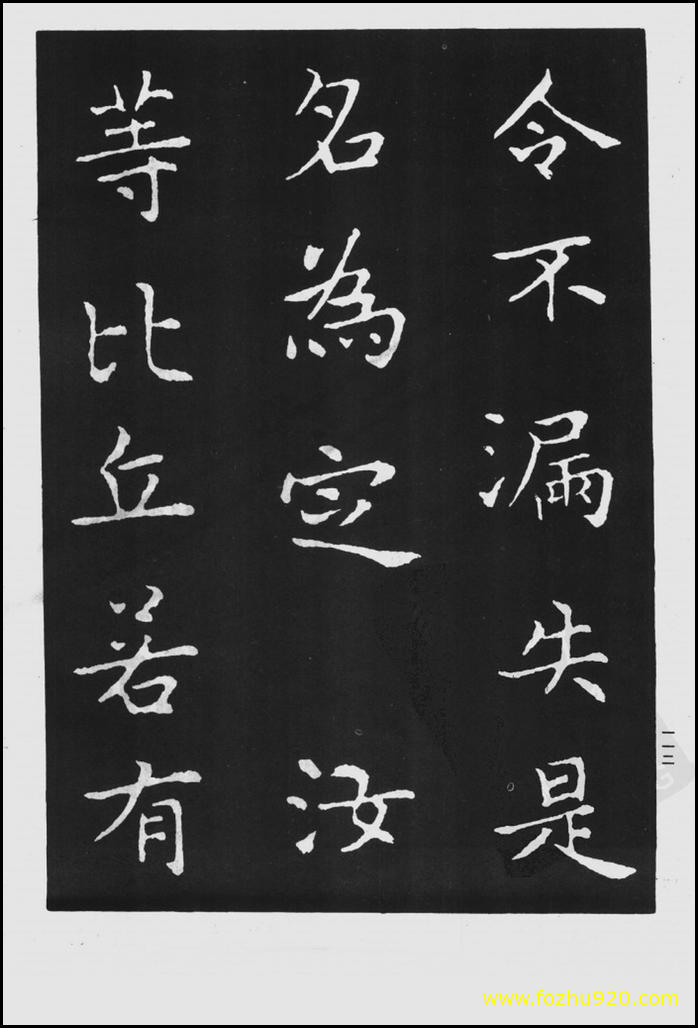 令不漏失是
名為定 汝
等比丘若有
一一三
www.fozhu920.com